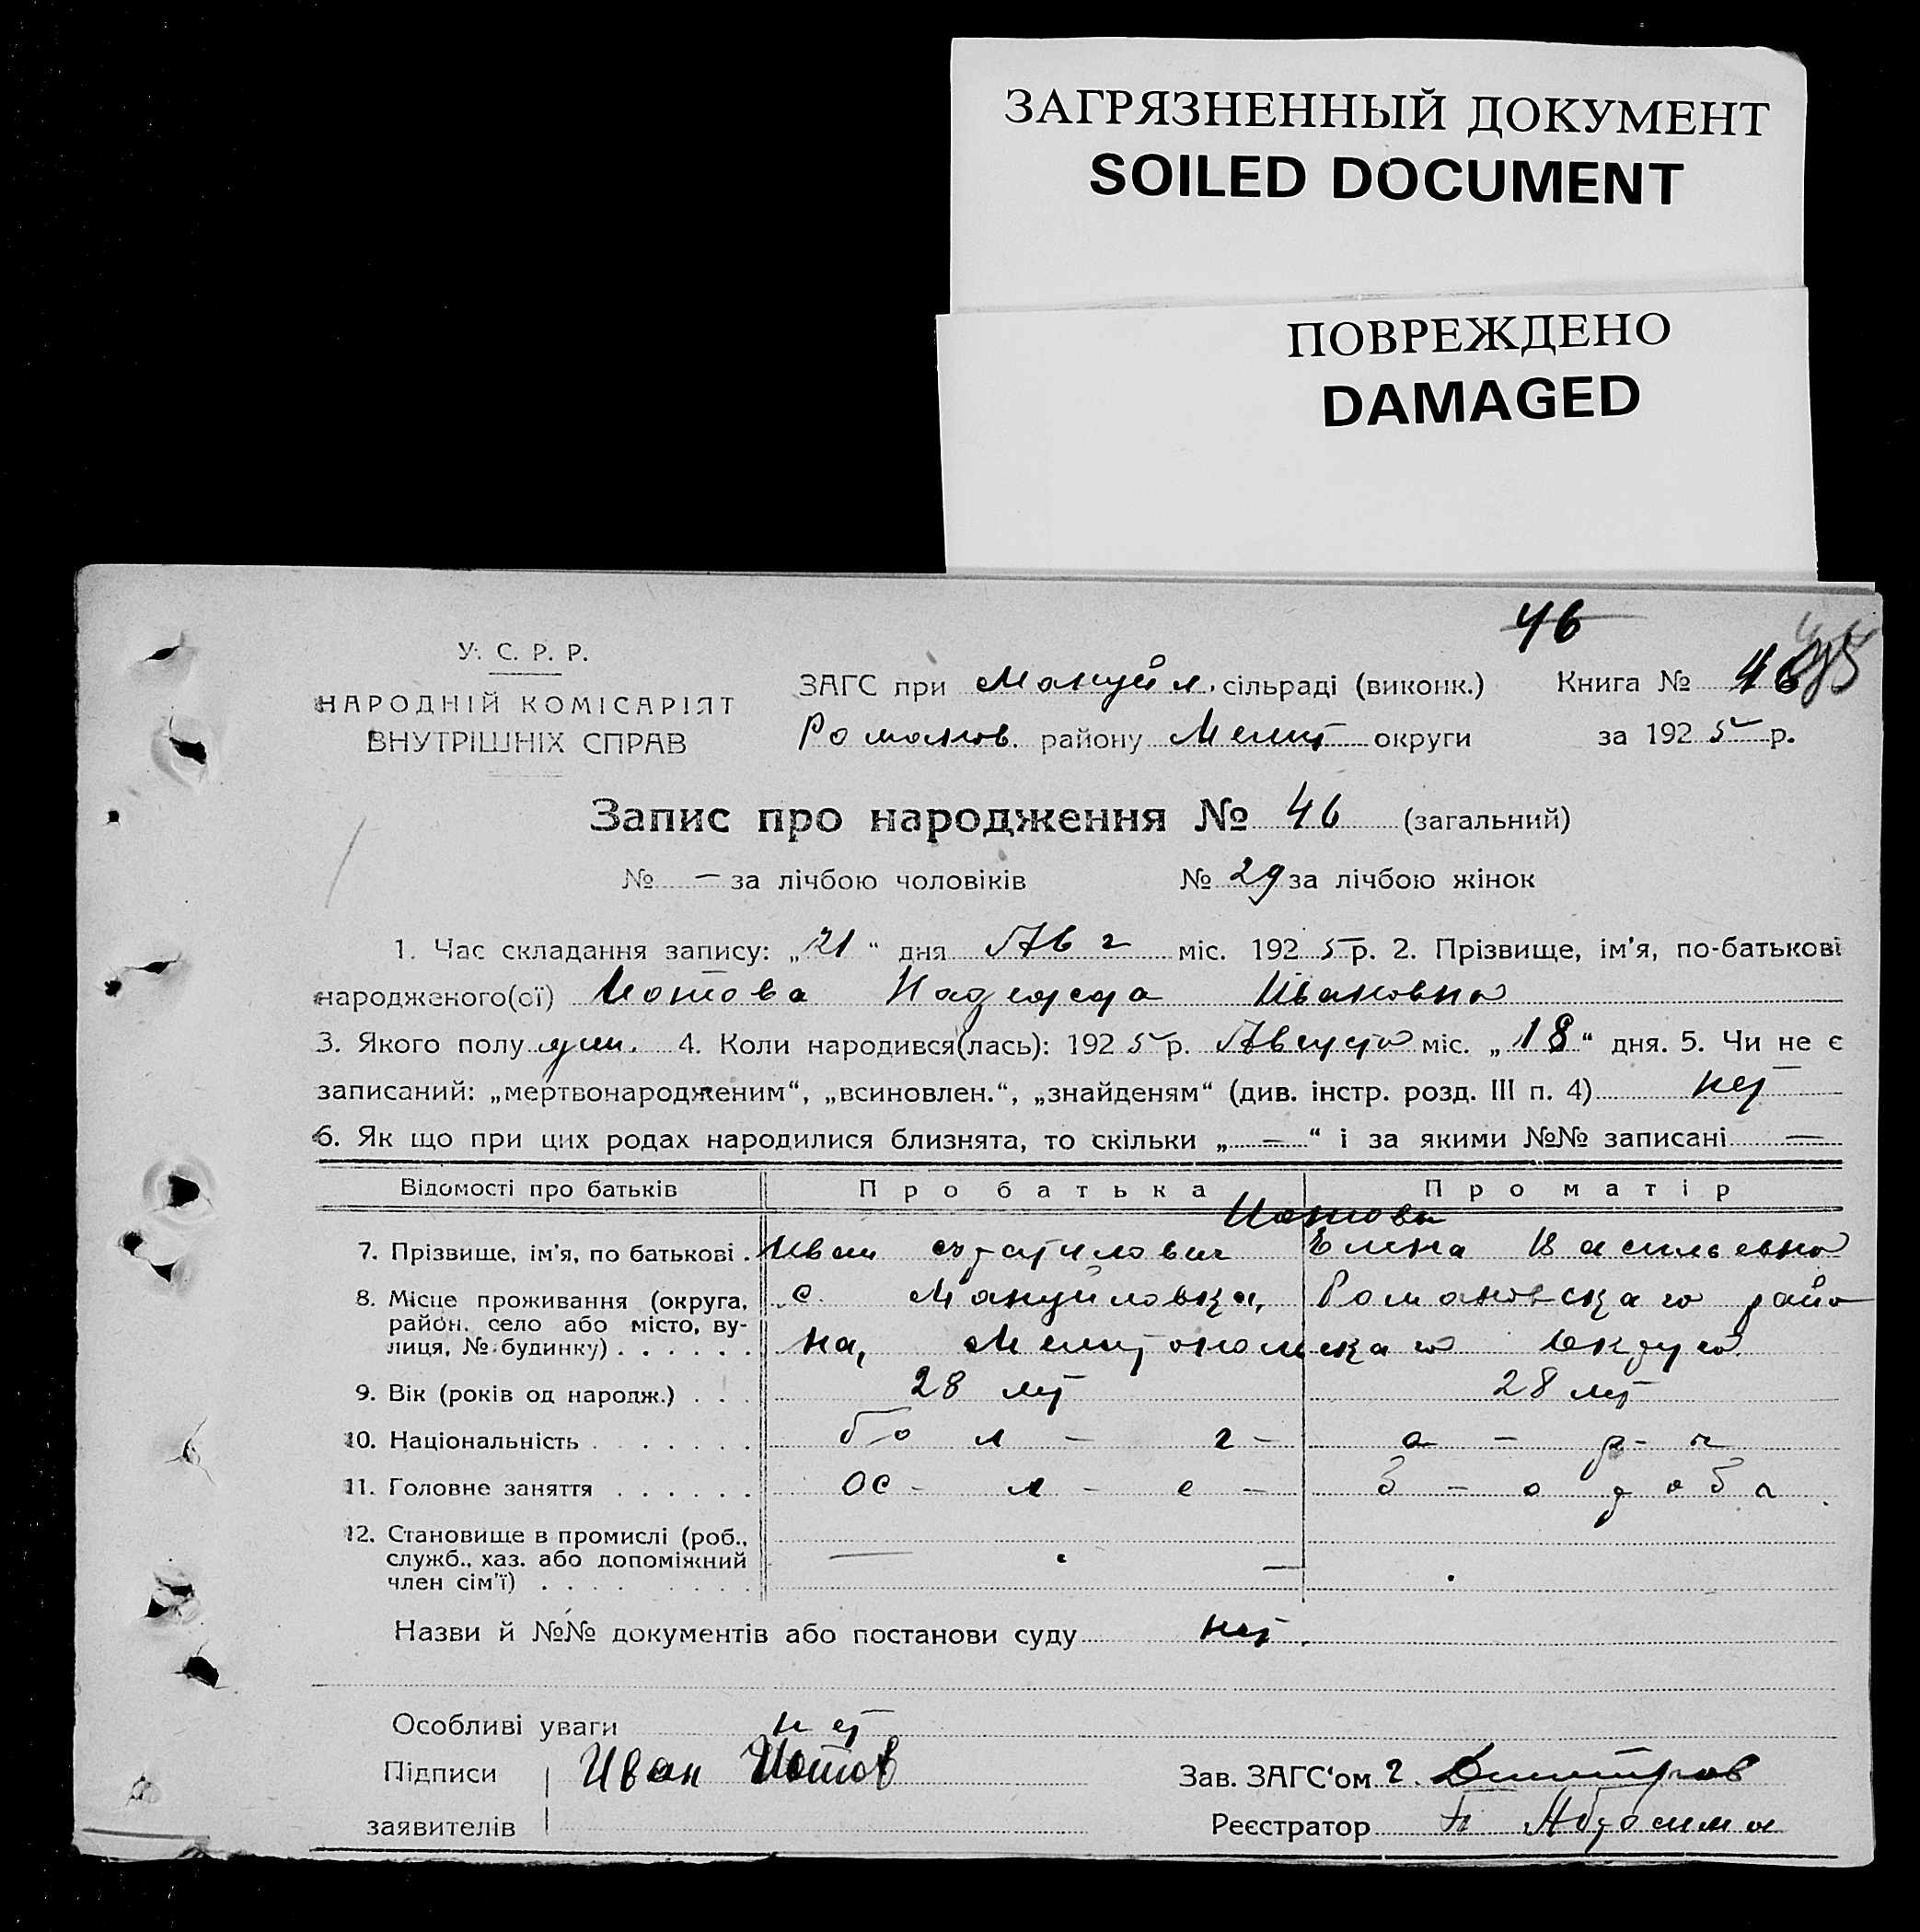 ЗАГРЯЗНЕННЫЙ ДОКУМЕНТ
SOILED DOCUMENT
ПОВРЕЖДЕНО
DAMAGED
46
У. С. Р. Р.
НАРОДНІЙ КОМІСАРІЯТ
ВНУТРІШНІХ СПРАВ
ЗАГС при Мануйл. сільраді (виконк.) Книга № 46
Романов. району Мелит округи за 1925 р.
Запис про народження № 46 (загальний)
№ — за лічбою чоловіків № 29 за лічбою жінок
1. Час складання запису: „21“ дня Авг міс. 1925 р. 2. Прізвище, ім'я, по-батькові
народженого(ої) Иотова Надежда Ивановна
3. Якого полу 4. Коли народився(лась): 1925 р. Августа міс. „18“ дня. 5. Чи не є
записаний: „мертвонародженим“, „всиновлен.“, „знайденям“ (див. інстр. розд. III п. 4) нет
6. Як що при цих родах народилися близнята, то скільки „—“ і за якими №№ записані —
Відомості про батьків Про батька Про матір
Иотовы
7. Прізвище, ім'я, по батькові . Иван Елена Васильевна
8. Місце проживання (округа, с. Мануйловка, Романовскаго райо
район, село або місто, ву-
лиця, № будинку) . . . . . . на, Мелитопольскаго Округа
9. Вік (років од народж.) . . . 28 лет 28 лет
10. Національність . . . . . . . бол - г - а - р - и
11. Головне заняття . . . . . .
12. Становище в промислі (роб.,
служб., хаз. або допоміжний — —
член сім'ї) . . . . . . . .
Назви й №№ документів або постанови суду нет.
Особливі уваги нет
Підписи Иван Иотов Зав. ЗАГС'ом Г. Димитров
заявителів Реєстратор